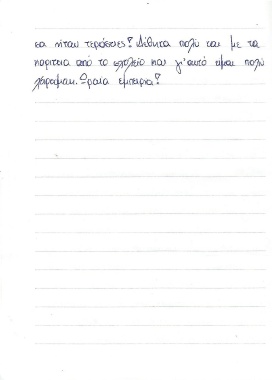 κα ήταν τεράστιες! Δέθηκα πολύ και με τα
κορίτσια από το σχολείο και γι'αυτό είμαι πολύ
χαρούμενη. Ωραία εμπειρία!